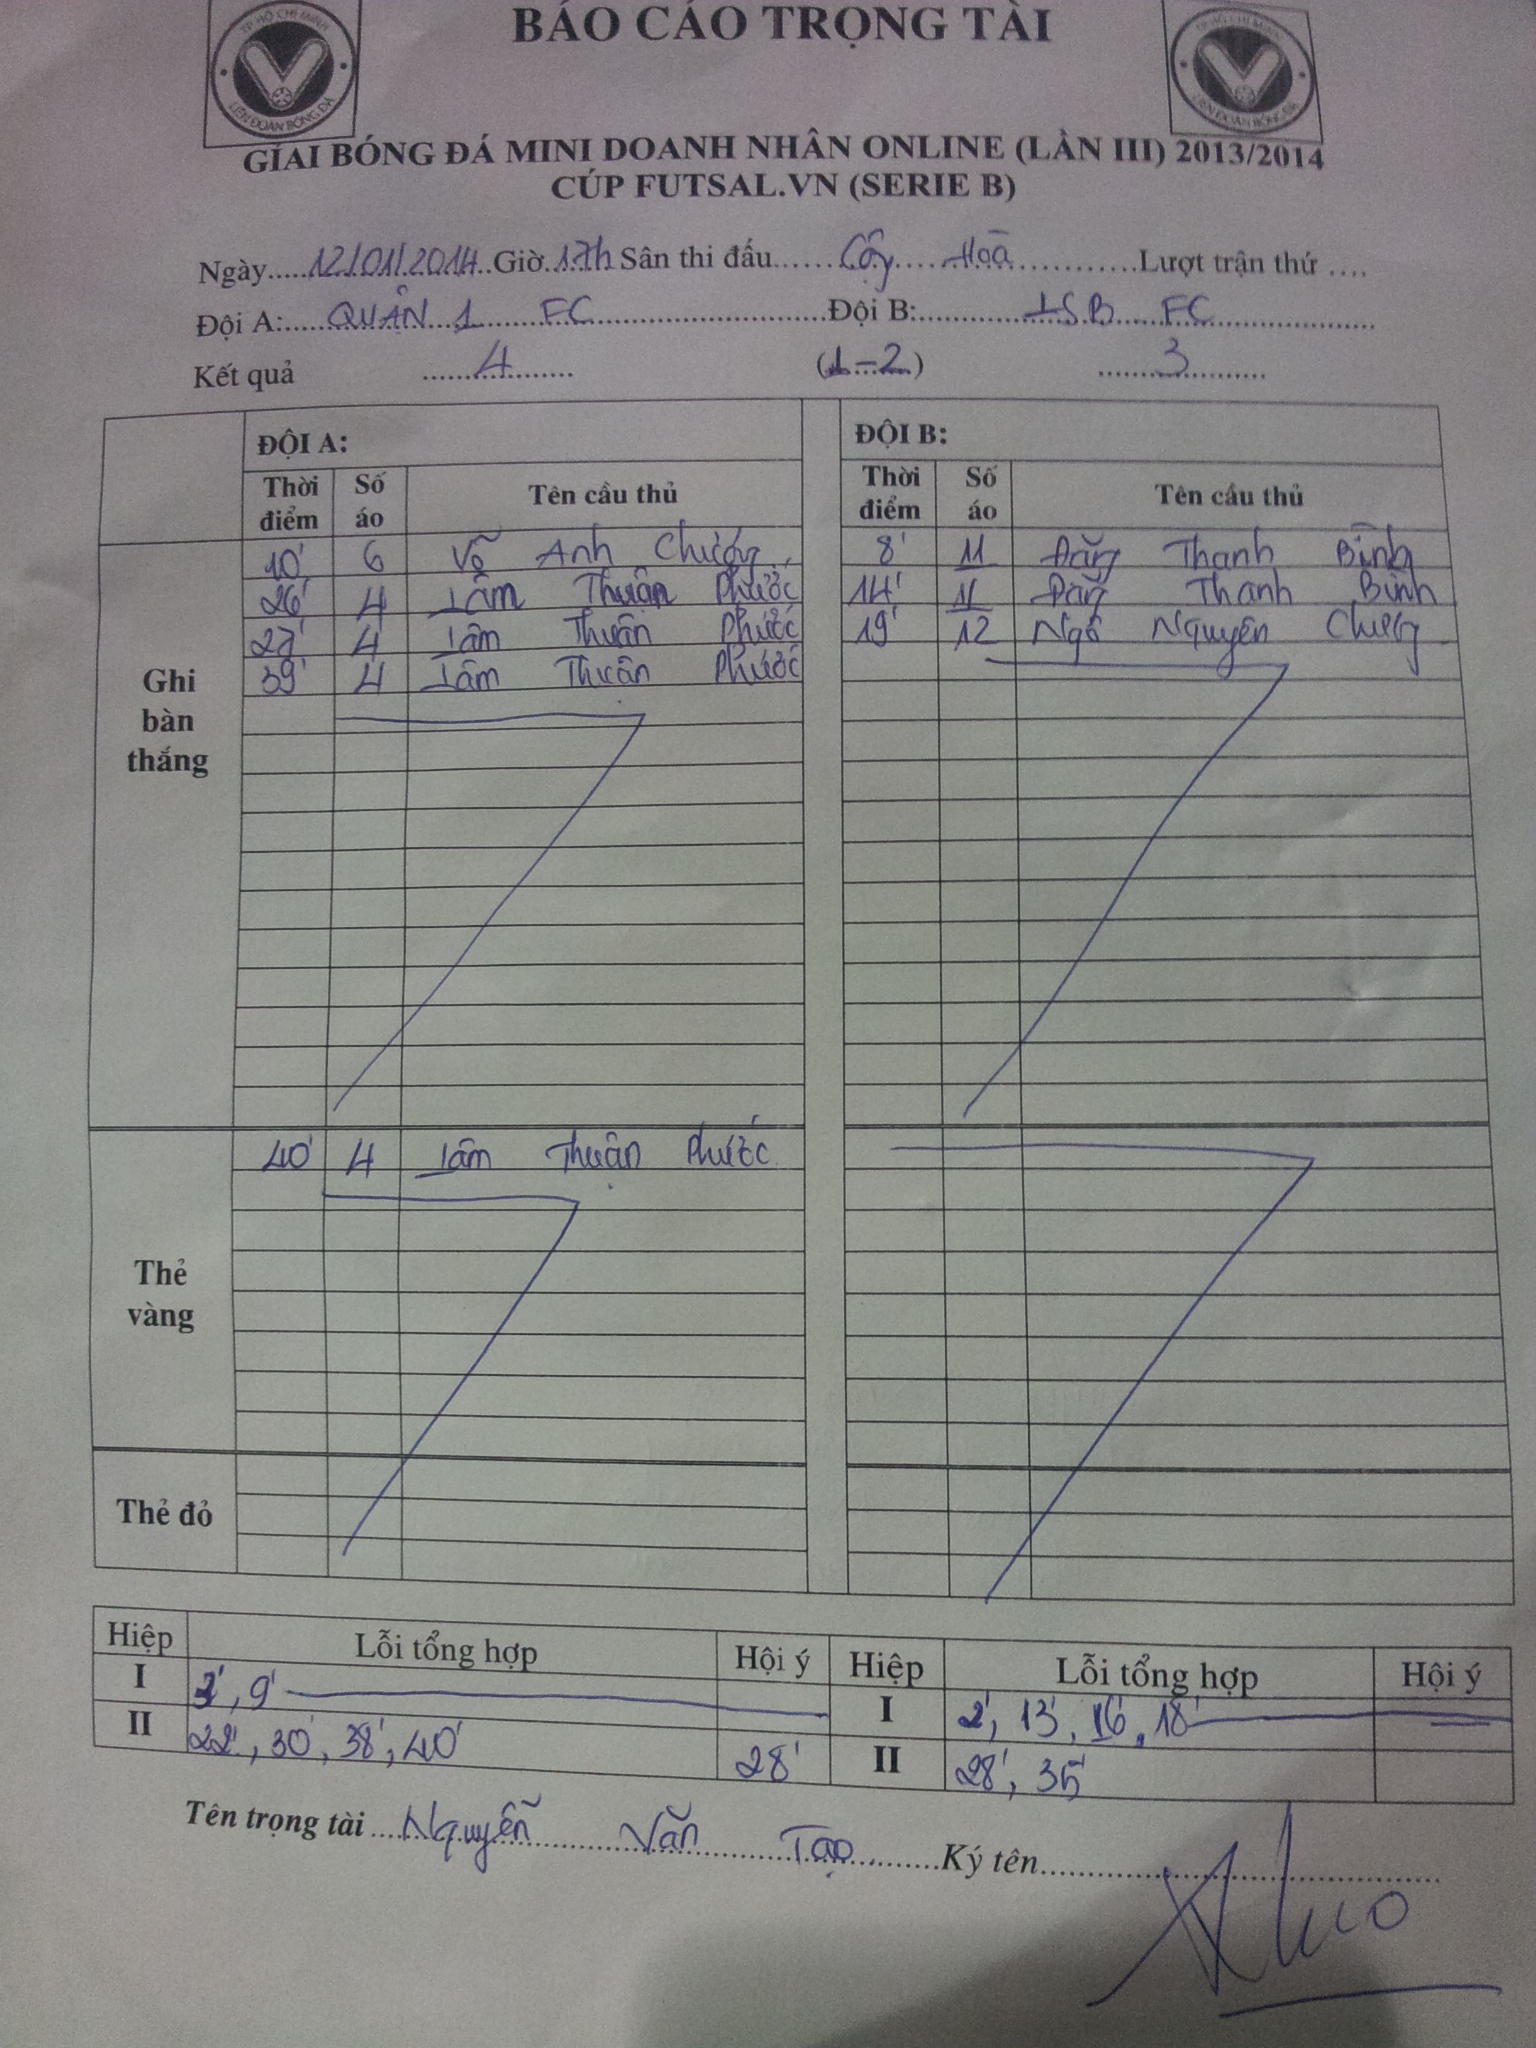 BÁO CÁO TRỌNG TÀI
TP HỒ CHÍ MINH
LIÊN ĐOÀN BÓNG ĐÁ
TP HỒ CHÍ MINH
LIÊN ĐOÀN BÓNG ĐÁ
GIẢI BÓNG ĐÁ MINI DOANH NHÂN ONLINE (LẦN III) 2013/2014
CÚP FUTSAL.VN (SERIE B)
Ngày.....12/01/2014..Giờ.17h Sân thi đấu......Cây.... Hoà............Lượt trận thứ ....
Đội A:....QUẬN 1 FC........Đội B:........LSB FC........
Kết quả 4 (1-2) 3
ĐỘI A: ĐỘI B:
Thời điểm Số áo Tên cầu thủ Thời điểm Số áo Tên cầu thủ
Ghi bàn thắng
10' 6 Võ Anh Chương 8' 11 Đặng Thanh Bình
26' 4 Lâm Thuận Phước 14' 11 Đặng Thanh Bình
27' 4 Lâm Thuận Phước 19' 12 Ngô Nguyên Chương
39' 4 Lâm Thuận Phước
Thẻ vàng
40' 4 Lâm Thuận Phước
Thẻ đỏ
Hiệp Lỗi tổng hợp Hội ý Hiệp Lỗi tổng hợp Hội ý
I 9' I 2', 13', 16', 18'
II 22', 30', 38', 40' 28' II 28', 35'
Tên trọng tài ....Nguyễn Văn Tạo.......Ký tên..........